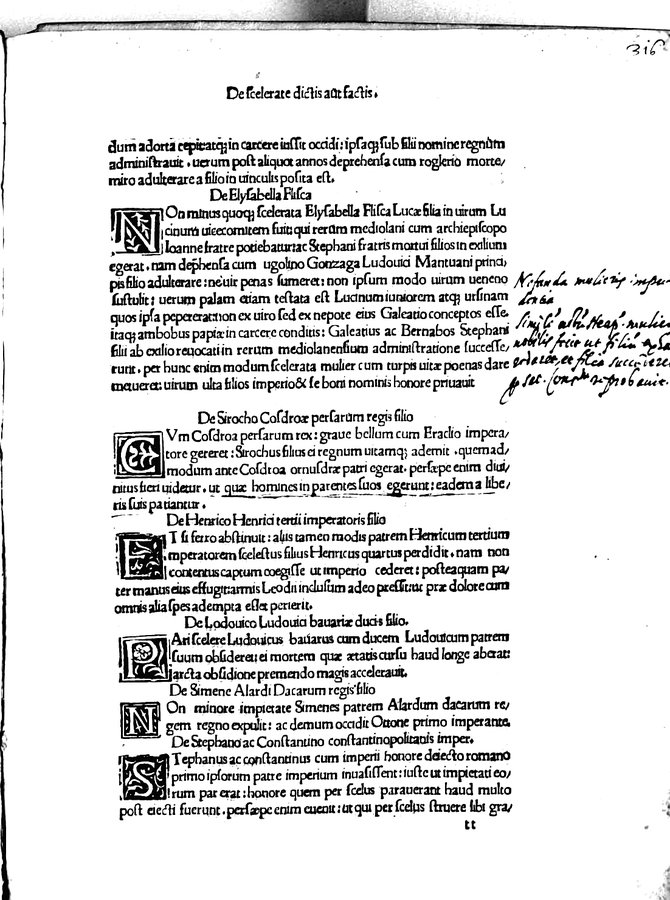 316
De scelerate dictis aut factis.
dum adorta cepitatq; in carcere iussit occidi: ipsaq; sub filii nomine regnum
administrauit. uerum post aliquot annos deprehensa cum roglerio morte/
miro adulterare a filio in uinculis posita est.
De Elysabella Flisca
NOn minus quoq; scelerata Elysabella Flisca Lucæ filia in uirum Lu
cinum uicecomitem fuit: qui rerum mediolani cum archiepiscopo
Ioanne fratre potiebatur: ac Stephani fratris mortui filios in exilium
egerat. nam dephensa cum ugolino Gonzaga Ludouici Mantuani princi/
pis filio adulterare: ne uir penas sumeret: non ipsum modo uirum ueneno
sustulit: uerum palam etiam testata est Lucinum iuniorem atq; ursinam
quos ipsa pepererat: non ex uiro sed ex nepote eius Galeatio conceptos esse.
itaq; ambobus papiæ in carcere conditis: Galeatius ac Bernabos Stephani
filii ab exilio reuocati in rerum mediolanensium administratione successe/
runt. per hunc enim modum scelerata mulier cum turpis uitæ poenas dare
meueret: uirum ulta filios imperio & se boni nominis honore priuauit
Nefanda mulieris impu-
dentia
mulier
nobilis fecit ut filii
et filio succederet
De Sirocho Cosdroæ persarum regis filio
CVm Cosdroa persarum rex: graue bellum cum Eraclio impera/
tore gereret: Sirochus filius ei regnum uitamq; ademit. quemad/
modum ante Cosdroa ornusdræ patri egerat. persæpe enim diui/
nitus fieri uidetur. ut quæ homines in parentes suos egerunt: eadem a libe/
ris suis patiantur.
De Henrico Henrici tertii imperatoris filio
ET si ferro abstinuit: aliis tameo modis patrem Henricum tertium
imperatorem scelestus filius Henricus quartus perdidit. nam non
contentus captum coegisse ut imperio cederet: posteaquam pa/
ter manus eius effugit: armis Leodii inclusum adeo pressit: ut præ dolore cum
omnis alia spes adempta esset perierit.
De Lodouico Ludouici bauariæ ducis filio.
PAri scelere Ludouicus bauarus cum ducem Ludouicum patrem
suum obsideret: ei mortem quæ ætatis cursu haud longe aberat:
iarcta obsidione premendo magis accelerauit.
De Simene Alardi Dacarum regis filio
NOn minore impietate Simenes patrem Alardum dacarum re/
gem regno expulit: ac demum occidit Ottone primo imperante.
De Stephano ac Constantino constantinopolitanis imper.
STephanus ac constantinus cum imperii honore deiecto romano
primo ipsorum patre imperium inuasissent: iuste ut impietati eo/
rum par erat: honore quem per scelus parauerant haud multo
post eiecti fuerunt. persæpe enim euenit: ut qui per scelus struere sibi gra/
tt